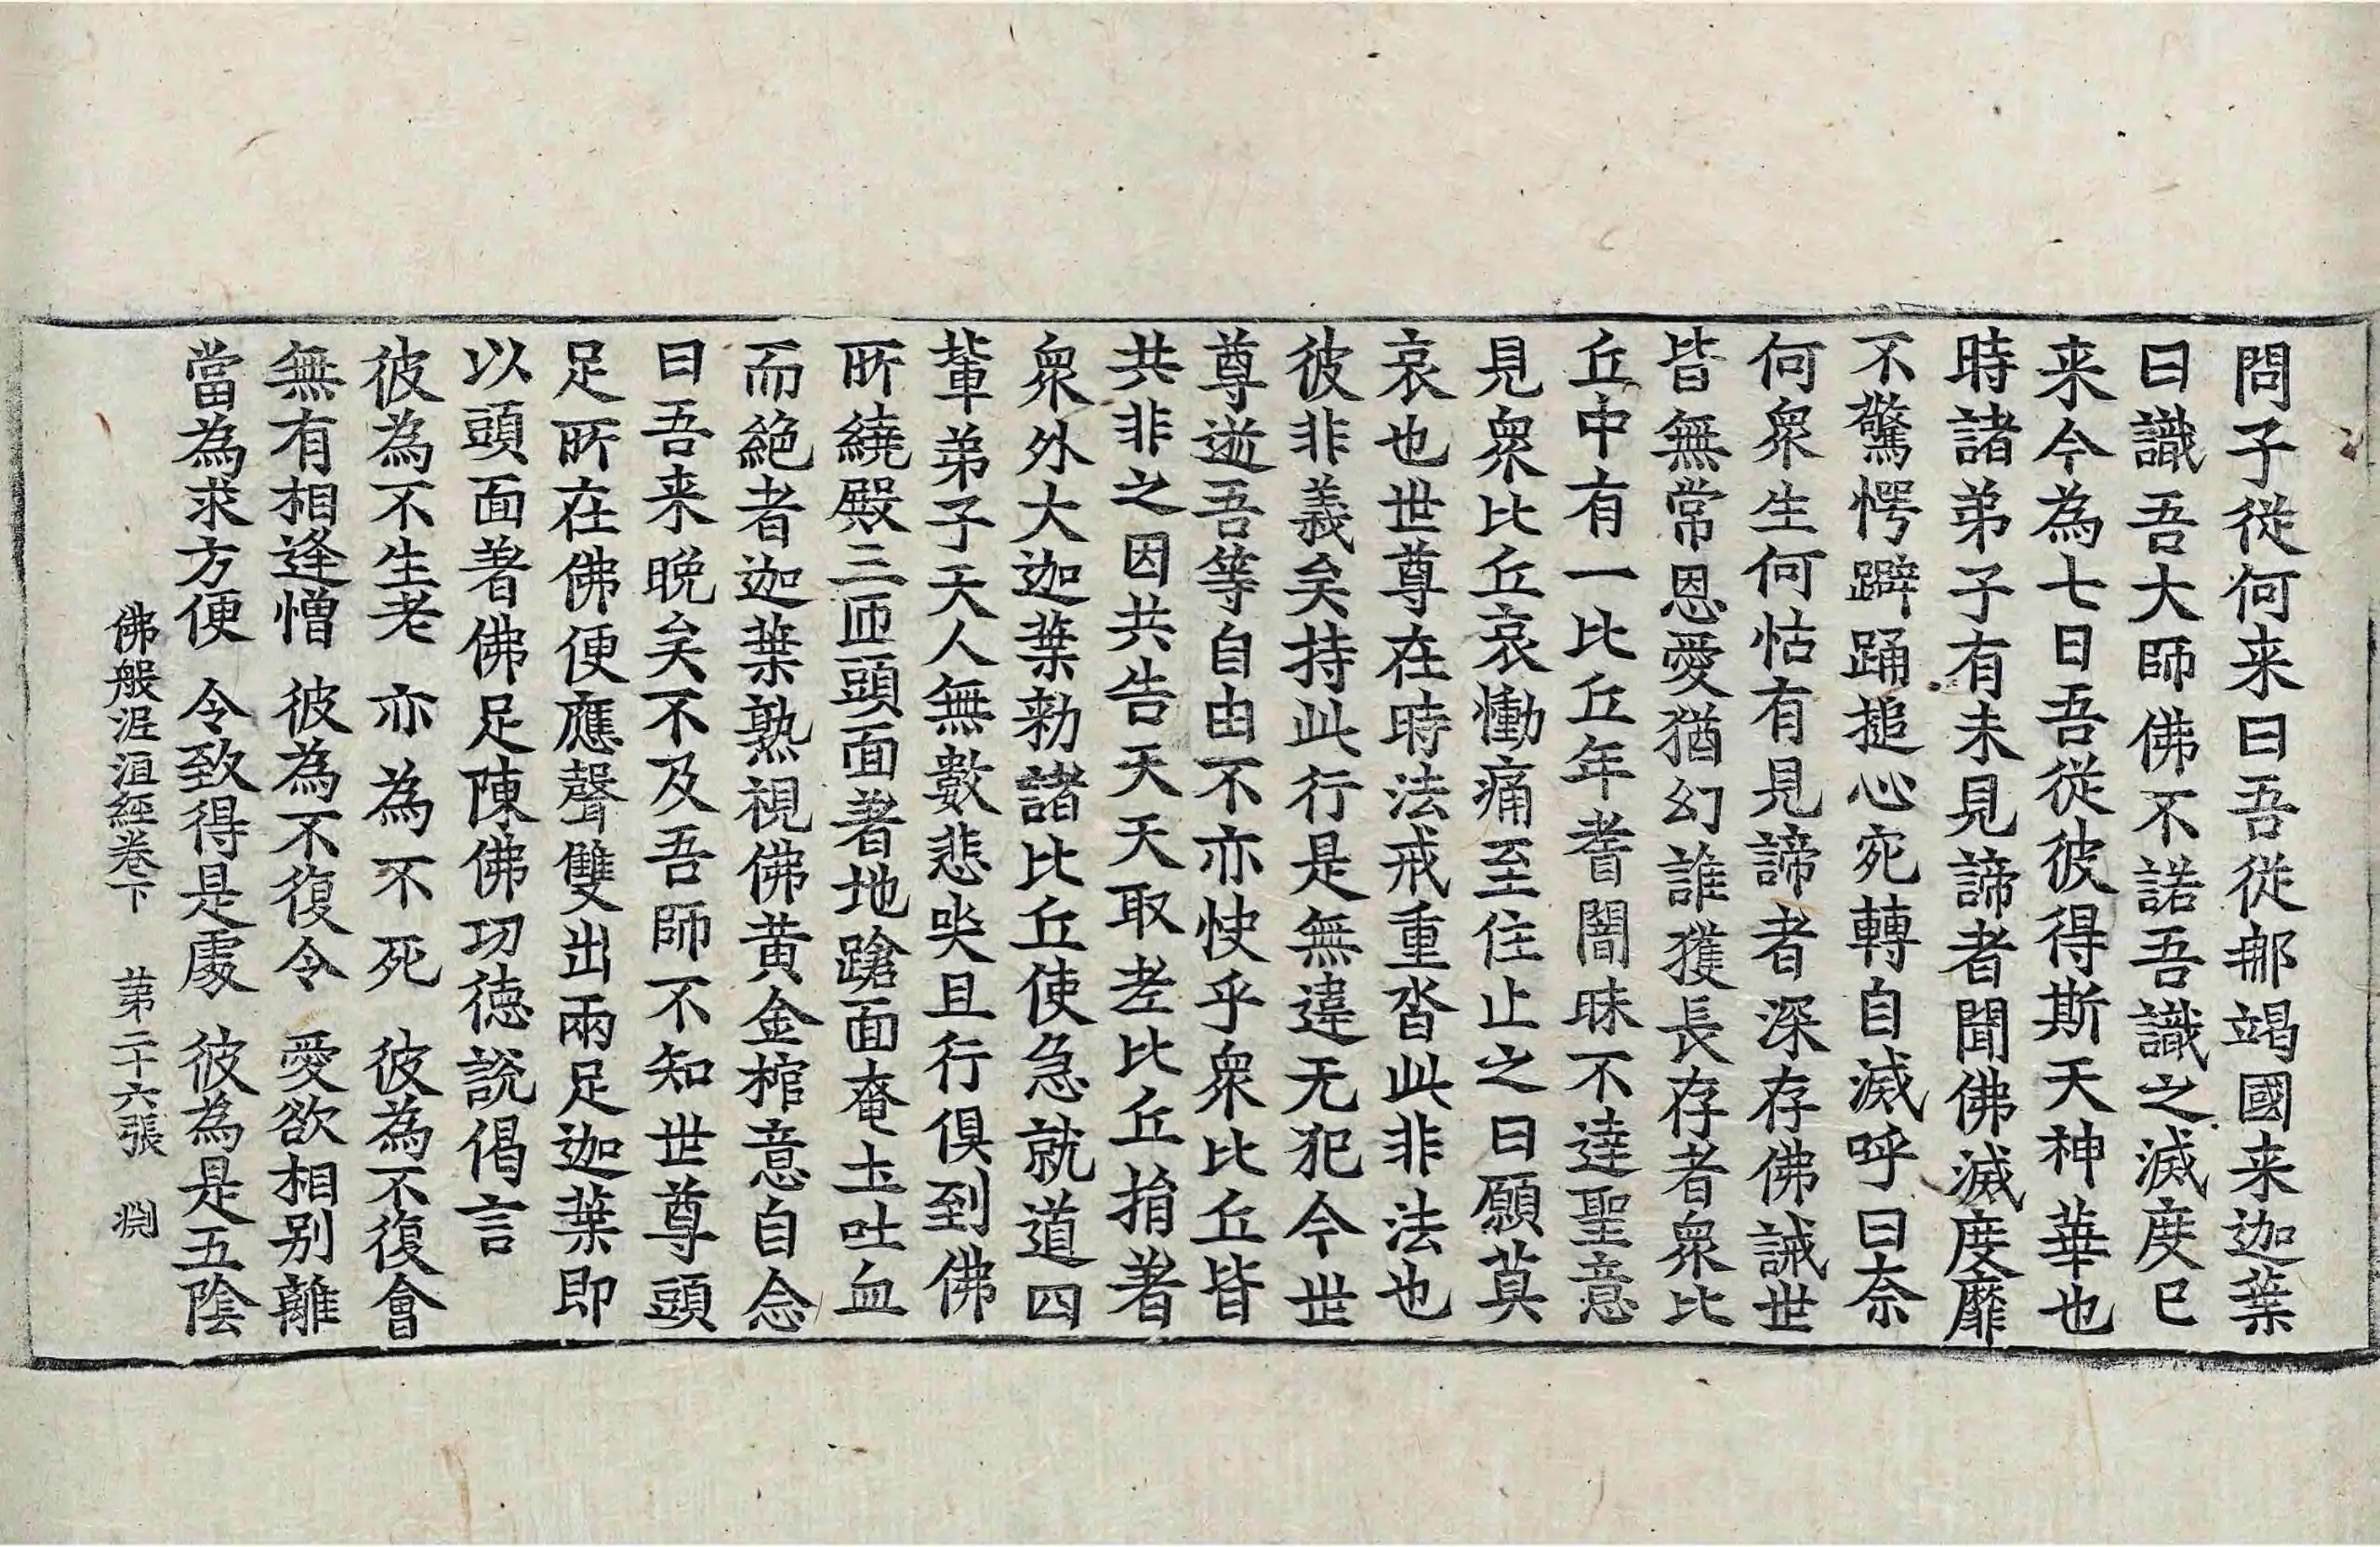 問子從何来曰吾從那竭國来迦葉
曰識吾大師佛不諾吾識之滅度已
来今為七日吾從彼得斯天神華也
時諸弟子有未見諦者聞佛滅度靡
不驚愕躃踊搥心宛轉自滅呼曰奈
何衆生何怙有見諦者深存佛誡世
皆無常恩愛猶幻誰獲長存者衆比
丘中有一比丘年耆闇昧不達聖意
見衆比丘哀慟痛至住止之曰願莫
哀也世尊在時法戒重沓此非法也
彼非義矣持此行是無違无犯今世
尊逝吾等自由不亦快乎衆比丘皆
共非之因共告天天取老比丘捐著
衆外大迦葉勑諸比丘使急就道四
輩弟子天人無數悲哭且行俱到佛
所繞殿三匝頭面著地蹌面奄土吐血
而絶者迦葉熟視佛黄金棺意自念
曰吾来晩矣不及吾師不知世尊頭
足所在佛便應聲雙出兩足迦葉即
以頭面著佛足陳佛功徳說偈言
彼為不生老　亦為不死　彼為不復會
無有相逢憎　彼為不復令　愛欲相別離
當為求方便　令致得是處　彼為是五陰
佛般泥洹經卷下　第二十六張　淵